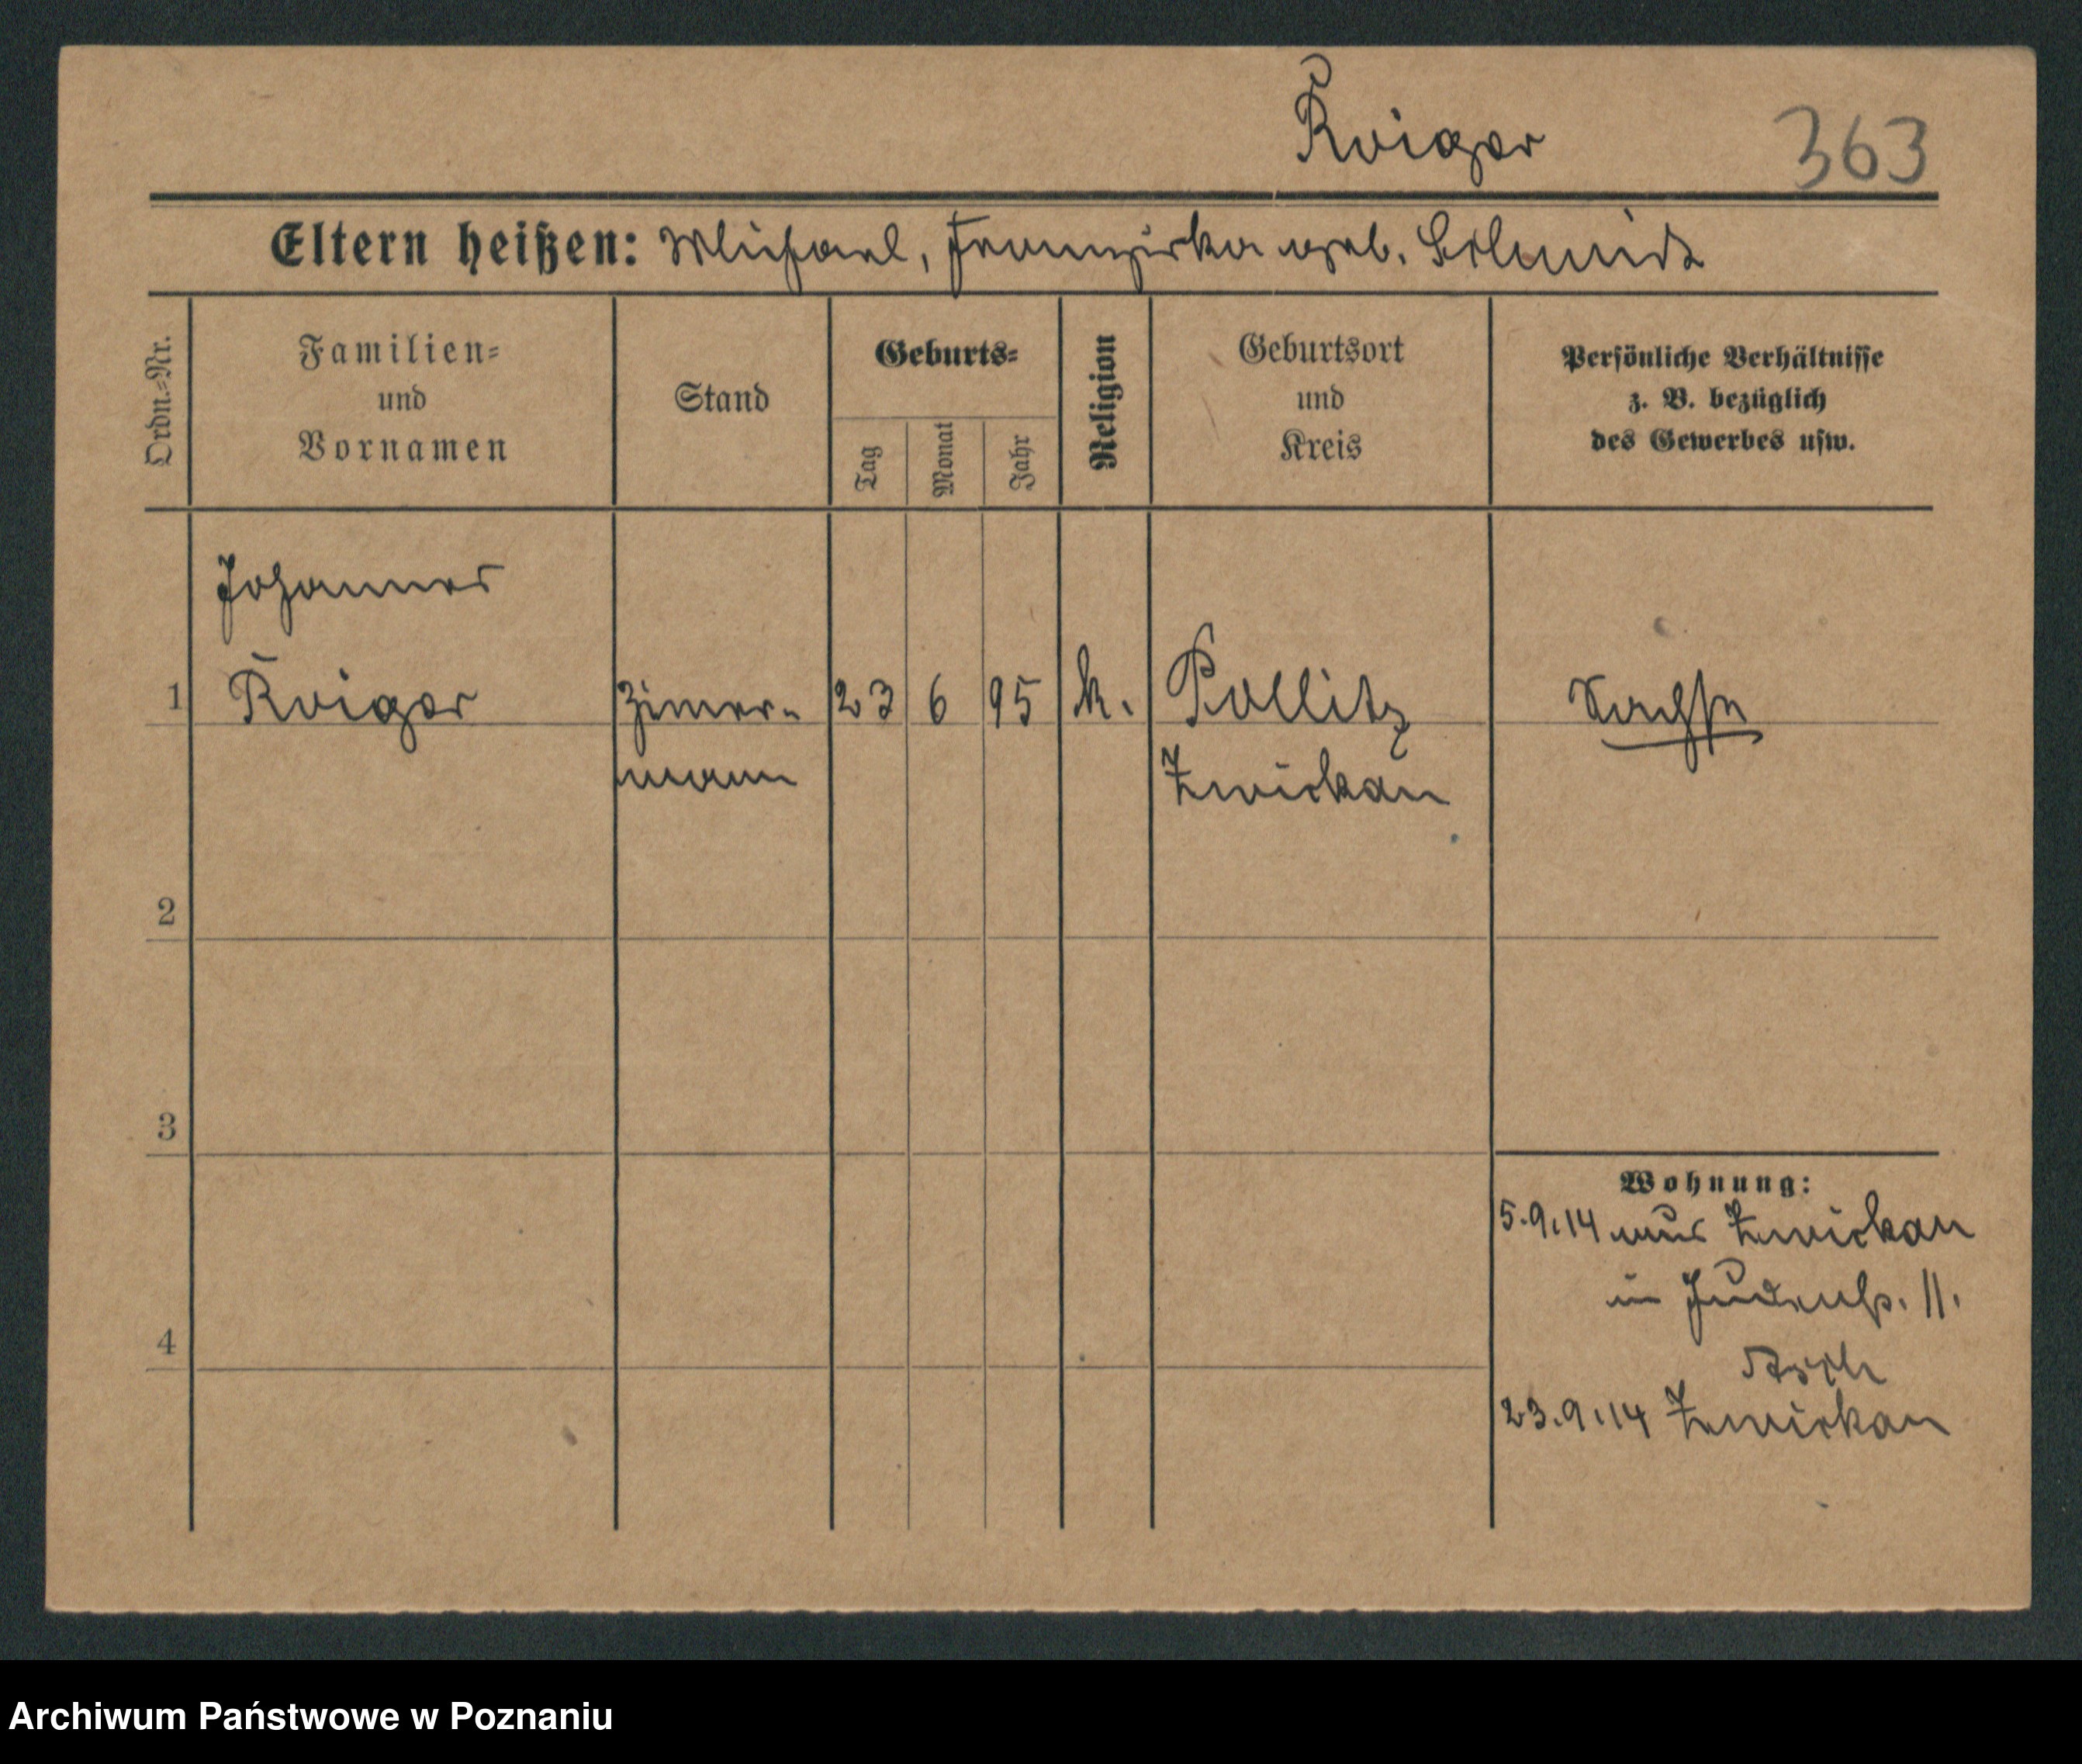 Kreiger 363
Eltern heißen: Michael, Franziska geb. Schmidt
Ordn.=Nr.
Familien=
und
Vornamen
Stand
Geburts=
Tag
Monat
Jahr
Religion
Geburtsort
und
Kreis
Persönliche Verhältnisse
z. B. bezüglich
des Gewerbes usw.
Johannes
1 Zimer- 23 6 95 k. Pöllitz Sachse
mann Zwickau
2
3
Wohnung:
5.9.14 aus Zwickau
in Judenstr. 11.
4
23.9.14 Zwickau
Archiwum Państwowe w Poznaniu